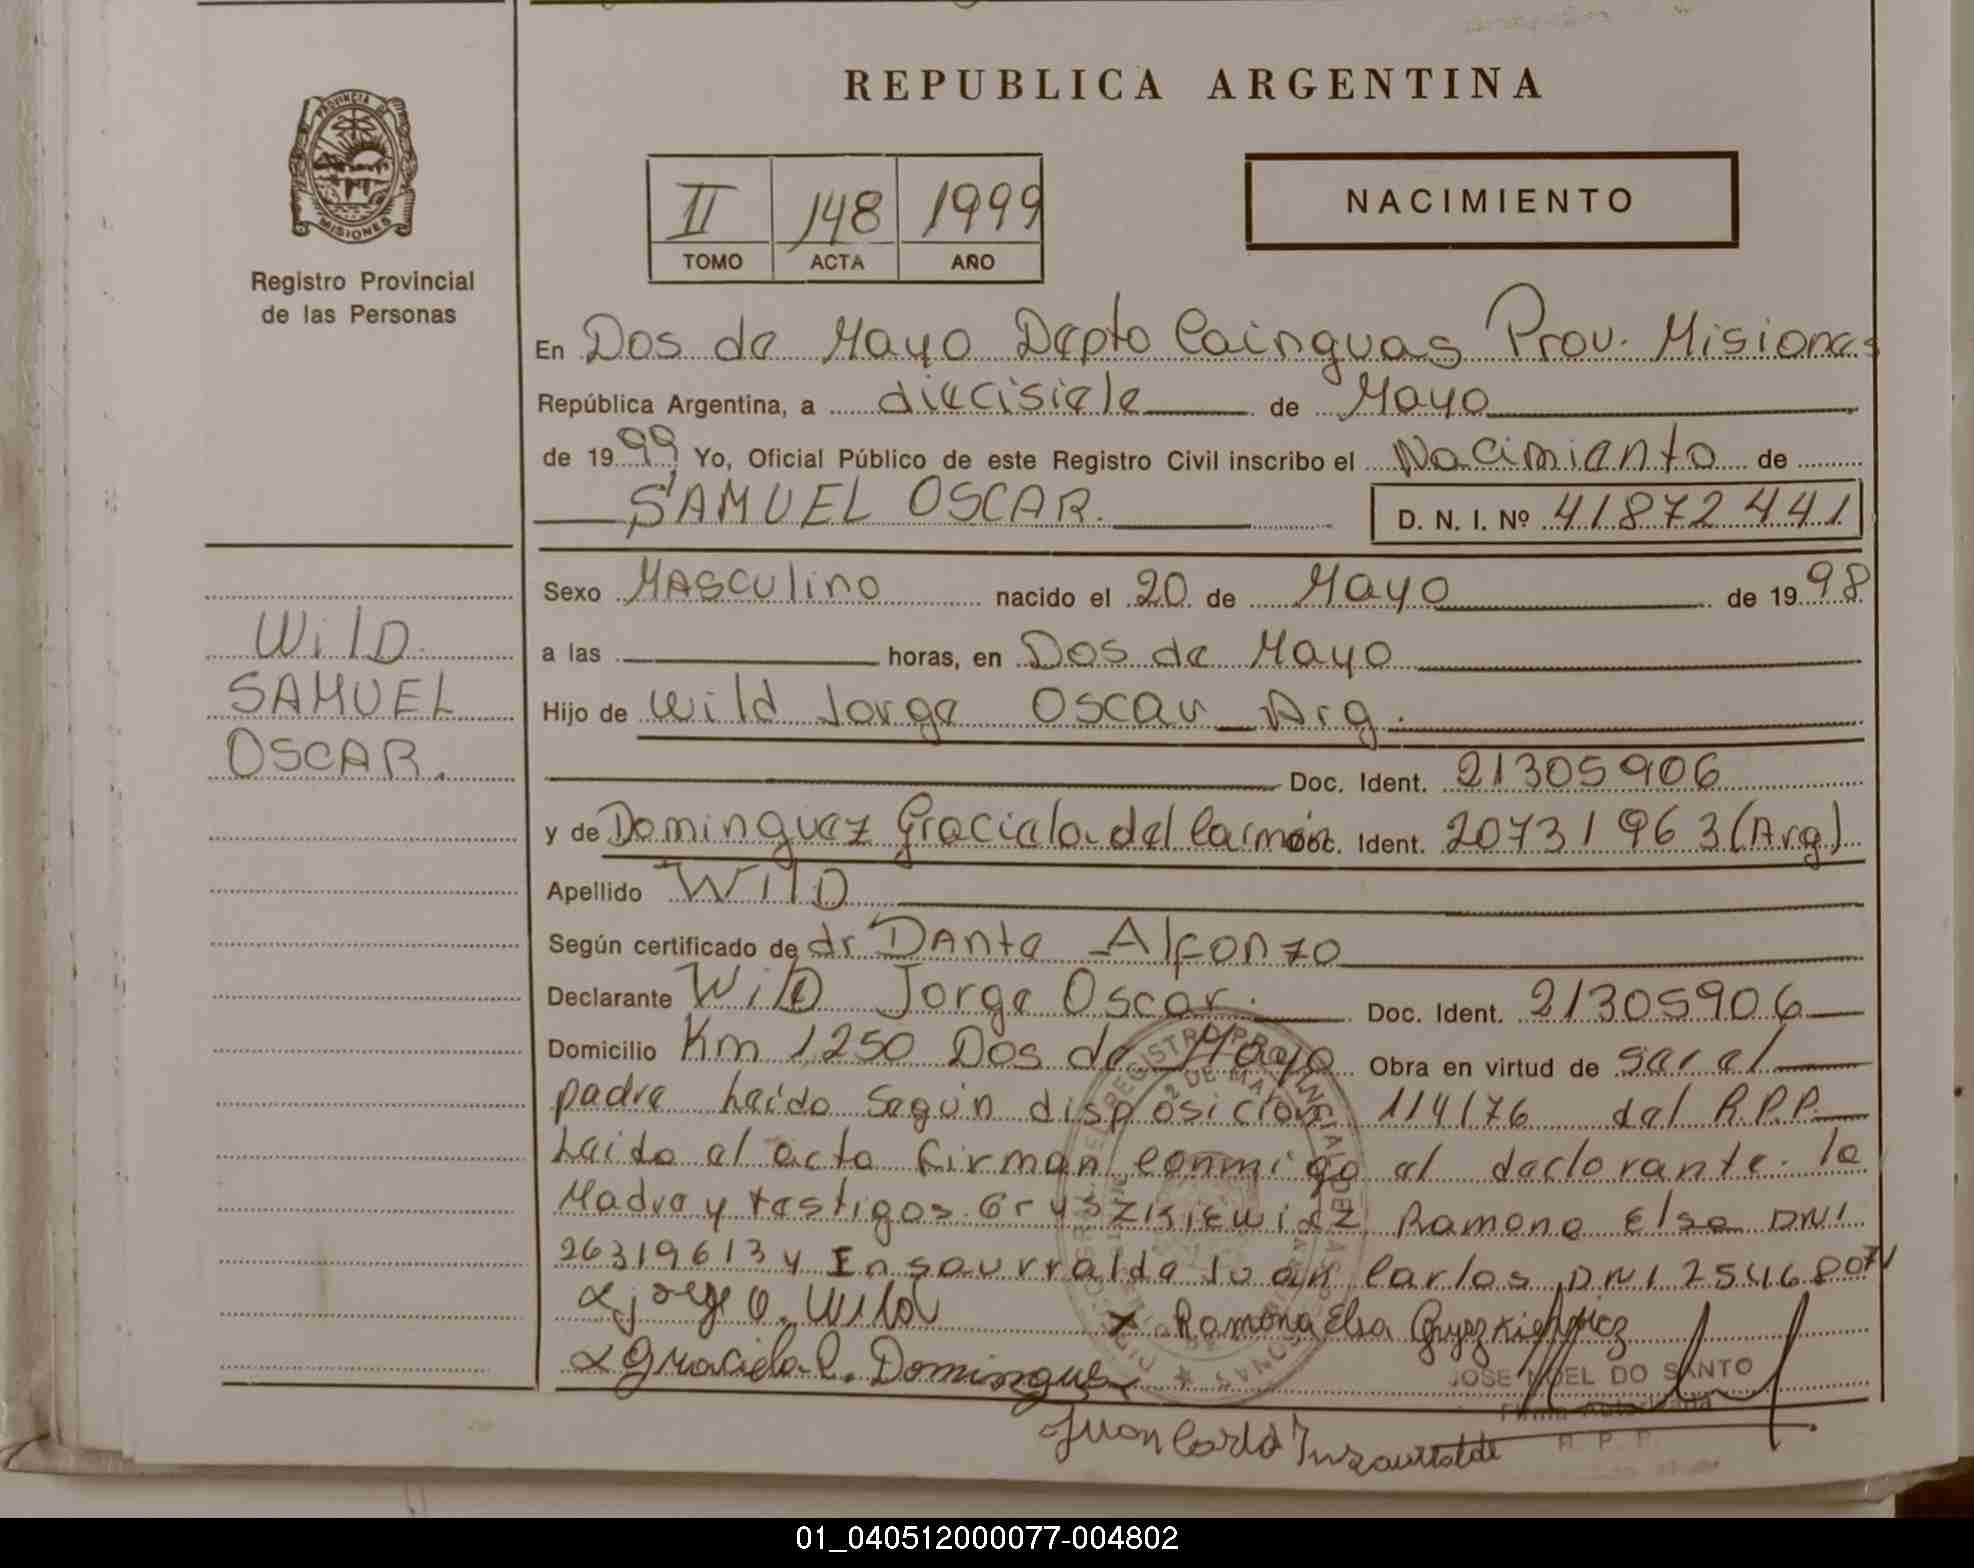 REPUBLICA ARGENTINA
PROVINCIA DE
MISIONES
Registro Provincial
de las Personas
II 148 1999
TOMO ACTA AÑO
NACIMIENTO
En Dos de Mayo Depto Cainguas Prov. Misiones
República Argentina, a diecisiete de Mayo
de 1999 Yo, Oficial Público de este Registro Civil inscribo el Nacimiento de
SAMUEL OSCAR. D. N. I. Nº 41872441
Sexo MAsculino nacido el 20 de Mayo de 1998
a las horas, en Dos de Mayo
Hijo de Wild Jorge Oscar Arg.
Doc. Ident. 21305906
y de Dominguez Graciela del Carmen Doc. Ident. 20731963 (Arg)
Apellido WilD
Según certificado de dr DAnte Alfonzo
Declarante WilD Jorge Oscar. Doc. Ident. 21305906
Domicilio Km 1250 Dos de Mayo Obra en virtud de ser el
padre Leido Según disposicion 114/76 del R.P.P.
Leido el acta firman conmigo el declarante. la
Madre y testigos Gryszkiewicz Ramona Elsa DNI
26319613 y Ensaurralde Juan Carlos DNI 25468071
x jorge O. Wild
x Ramona Elsa Gryszkiewicz
x Graciela C. Dominguez
JOSE NOEL DO SANTO
Firma Autorizada
R. P. P.
Juan Carlos Inzaurralde
WilD
SAMUEL
OSCAR.
01_040512000077-004802